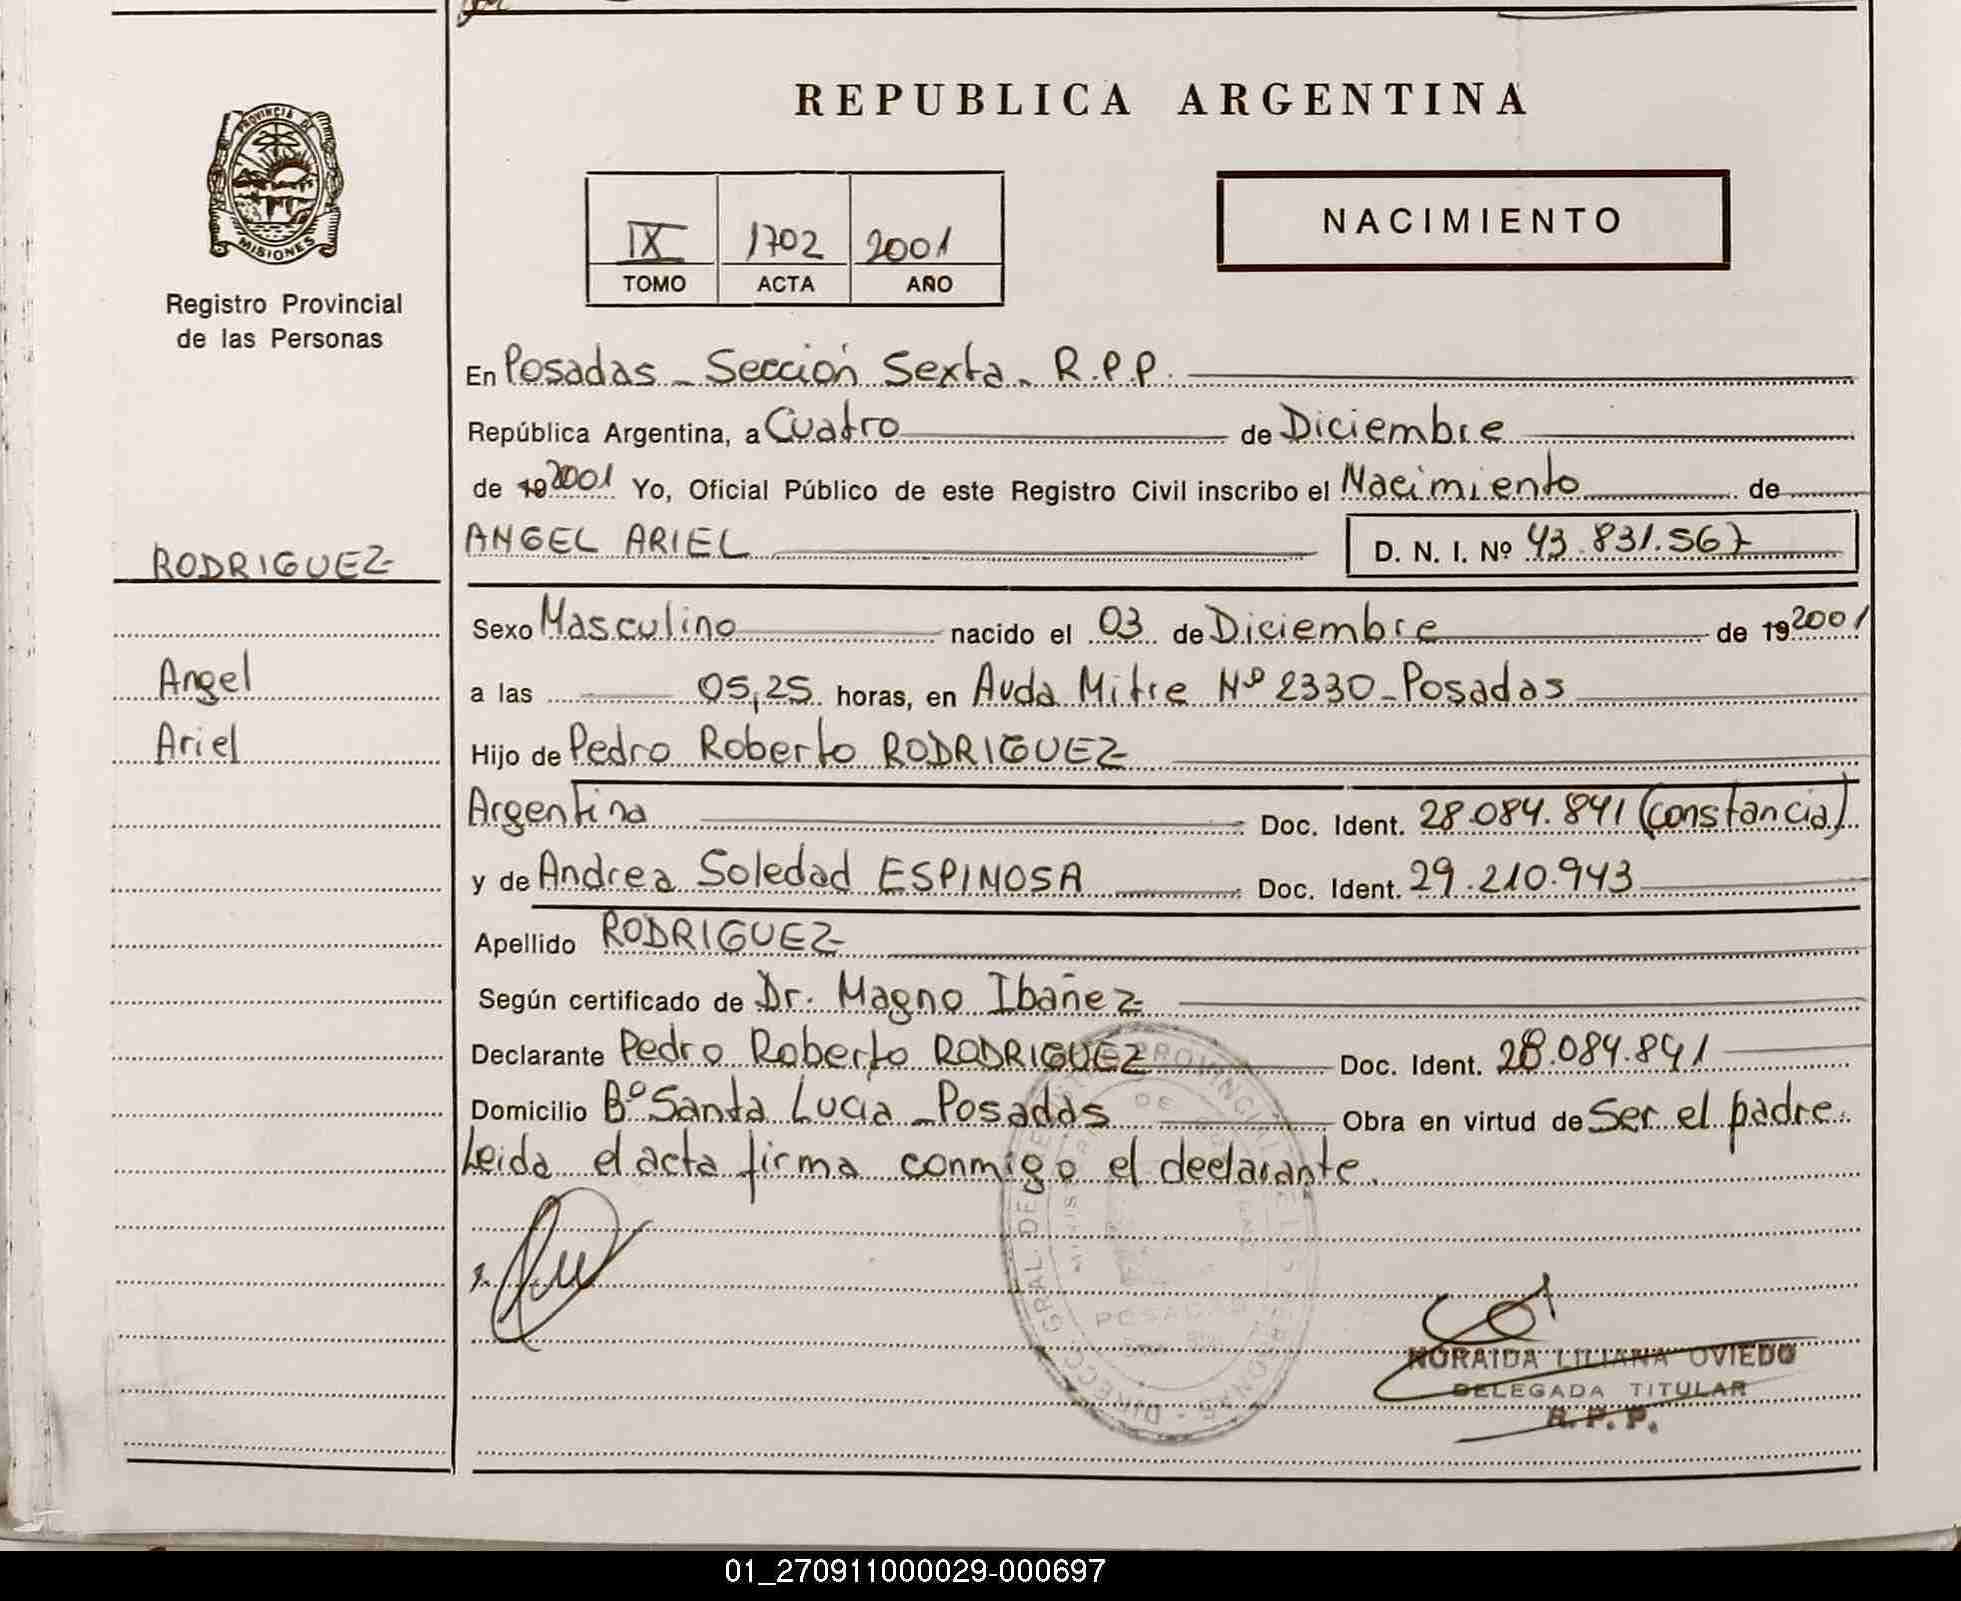 REPUBLICA ARGENTINA
PROVINCIA DE
MISIONES
Registro Provincial
de las Personas
IX 1702 2001
TOMO ACTA AÑO
NACIMIENTO
En Posadas - Sección Sexta - R.P.P.
República Argentina, a Cuatro de Diciembre
de 19 2001 Yo, Oficial Público de este Registro Civil inscribo el Nacimiento de
RODRIGUEZ
ANGEL ARIEL D. N. I. Nº 43.831.567
Sexo Masculino nacido el 03 de Diciembre de 19 2001
Angel
a las 05,25 horas, en Avda Mitre Nº 2330 - Posadas
Ariel
Hijo de Pedro Roberto RODRIGUEZ
Argentina Doc. Ident. 28.084.841 (constancia)
y de Andrea Soledad ESPINOSA Doc. Ident. 29.210.943
Apellido RODRIGUEZ
Según certificado de Dr. Magno Ibañez
Declarante Pedro Roberto RODRIGUEZ Doc. Ident. 28.084.841
Domicilio Bº Santa Lucia - Posadas Obra en virtud de Ser el padre.
Leida el acta firma conmigo el declarante.
POSADAS
NORAIDA LILIANA OVIEDO
DELEGADA TITULAR
R. P. P.
01_270911000029-000697